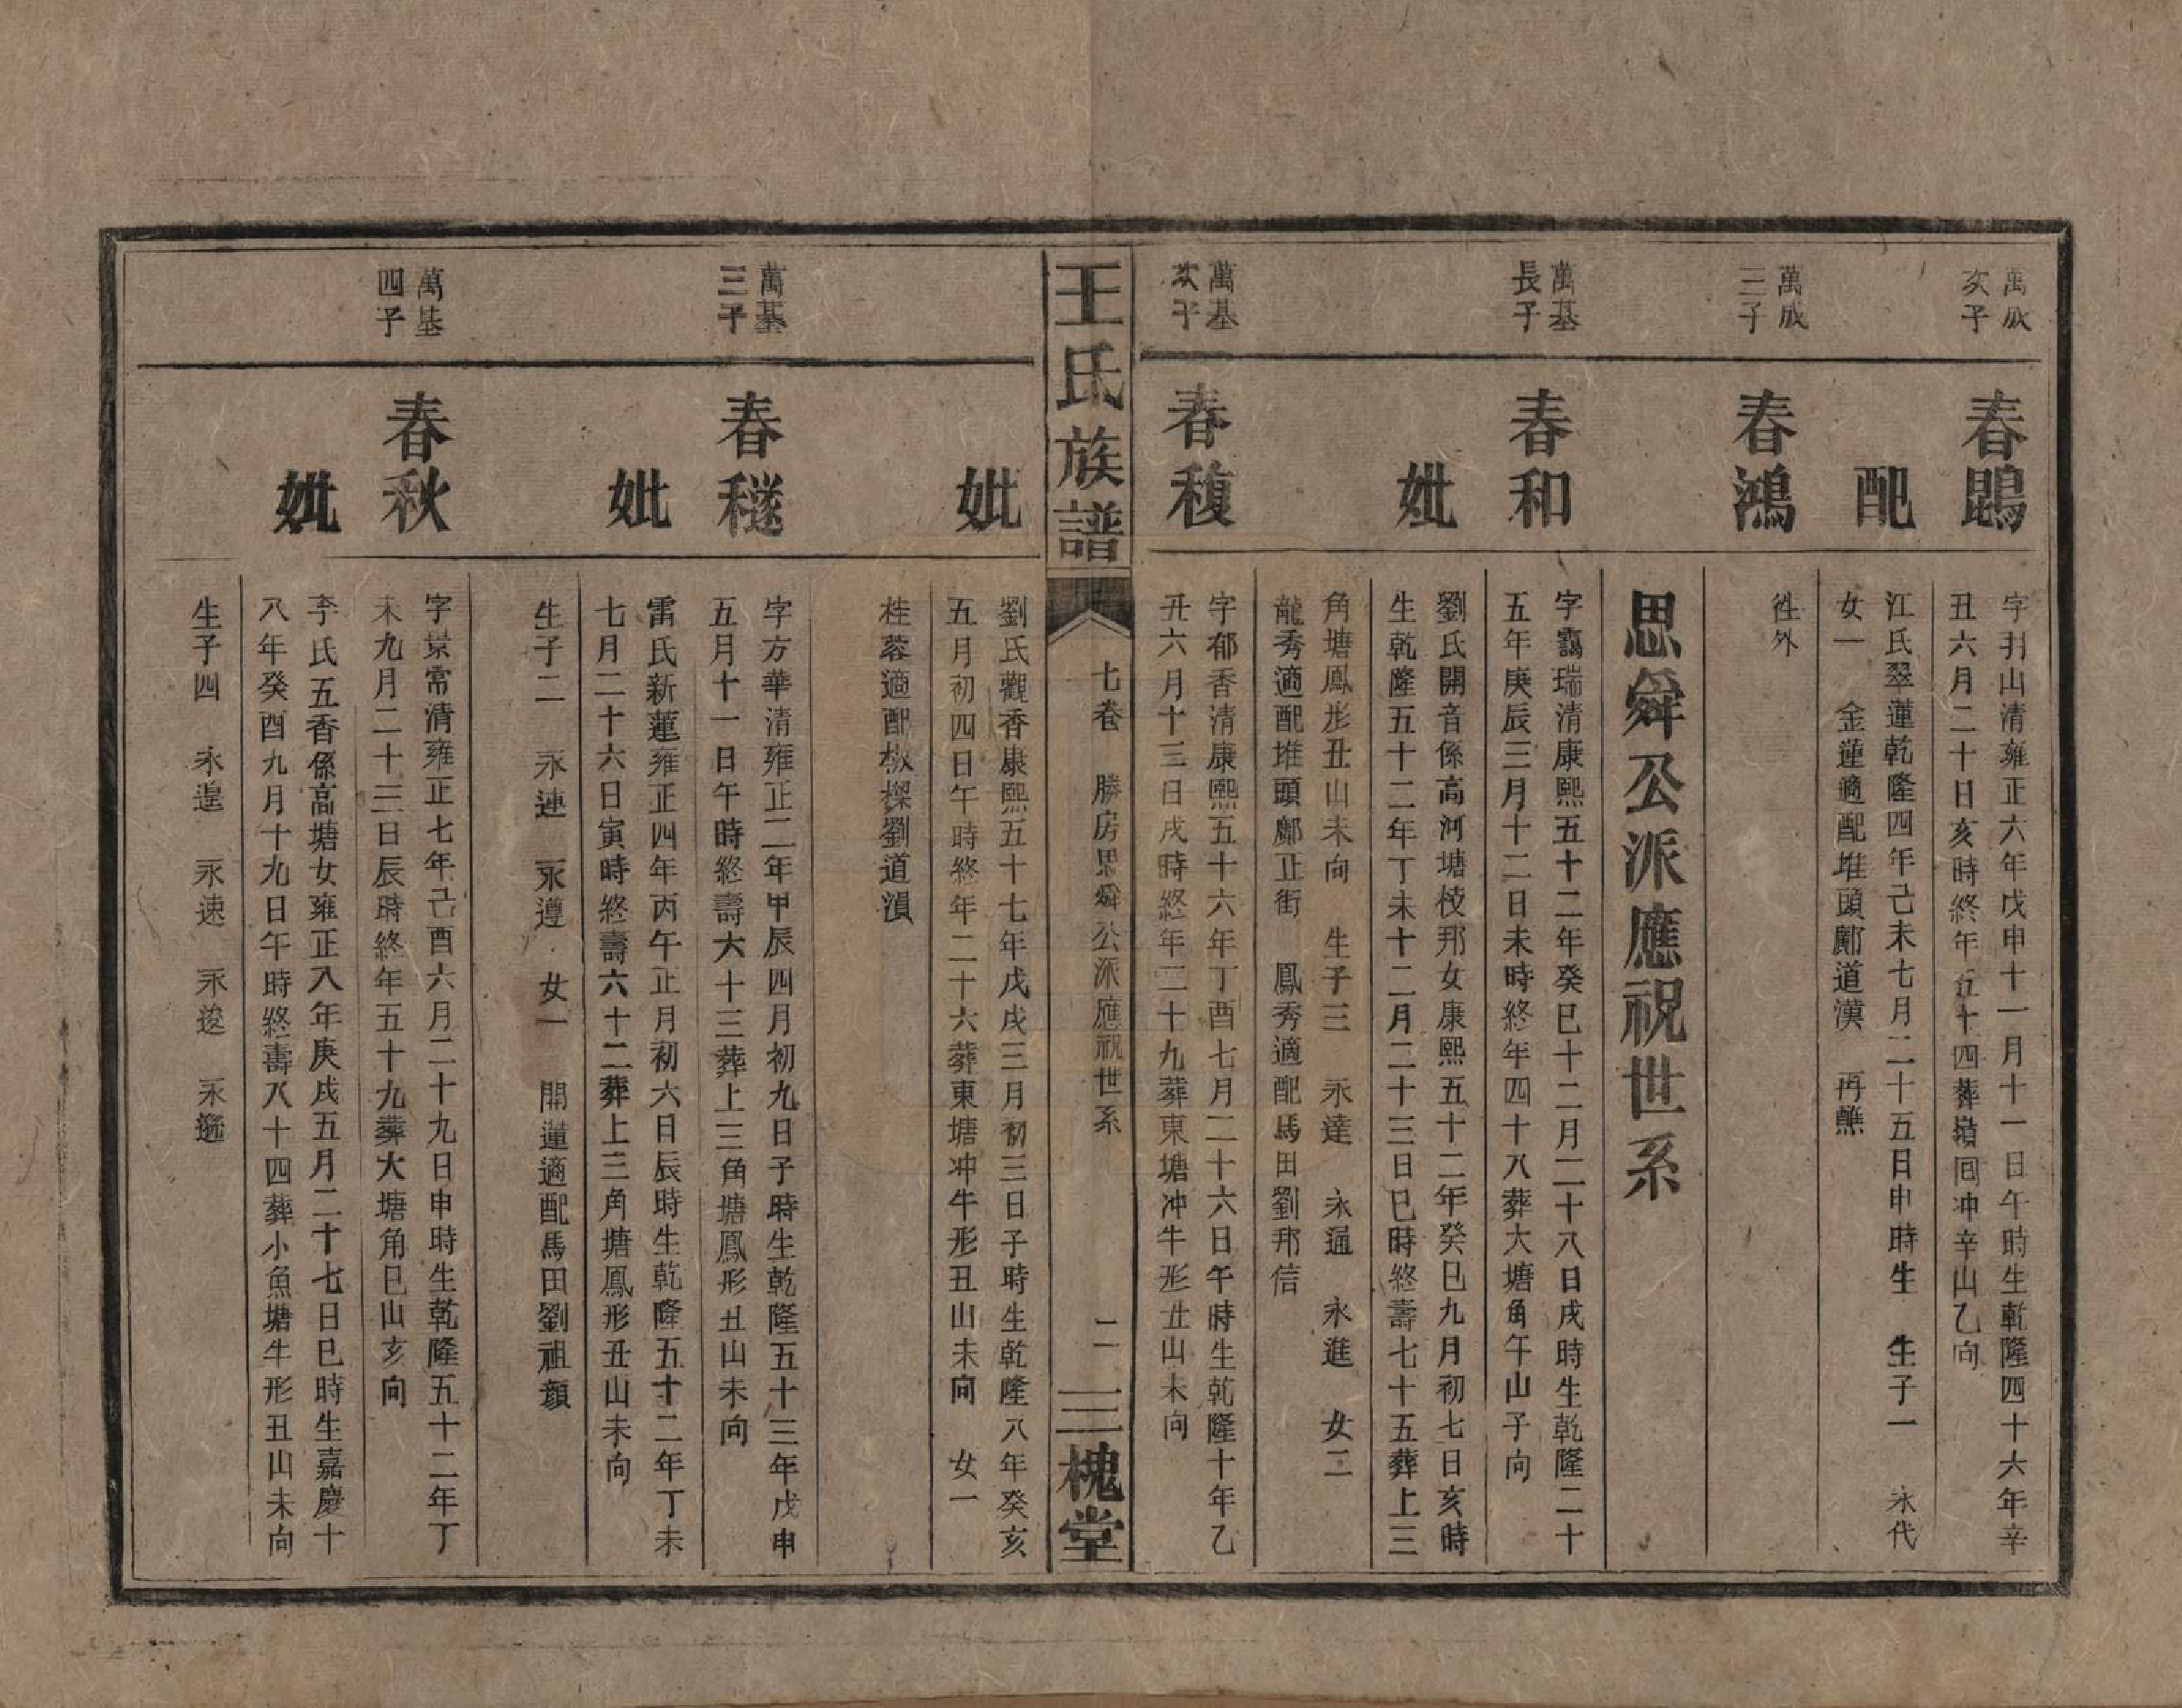 萬成
次子
春鵾
字扗山清雍正六年戊申十一月十一日午時生乾隆四十六年辛
丑六月二十日亥時終年五十四葬嶺囘冲辛山乙向
配
江氏翠蓮乾隆四年己未七月二十五日申時生 生子一 永代
女一 金蓮適配堆頭鄺道漢 再醮
萬成
三子
春鴻
徃外
思舜公派應祝世系
萬基
長子
春和
字靄瑞清康熙五十二年癸巳十二月二十八日戌時生乾隆二十
五年庚辰三月十二日未時終年四十八葬大塘角午山子向
妣
劉氏開音係高河塘枝邦女康熙五十二年癸巳九月初七日亥時
生乾隆五十二年丁未十二月二十三日巳時終壽七十五葬上三
角塘鳳形丑山未向 生子三 永達 永通 永進 女二
龍秀適配堆頭鄺正街 鳳秀適配馬田劉邦信
萬基
次子
春馥
字郁香清康熙五十六年丁酉七月二十六日午時生乾隆十年乙
丑六月十三日戌時終年二十九葬東塘冲牛形丑山未向
王氏族譜
七卷 勝房思舜公派應祝世系
二
三槐堂
妣
劉氏觀香康熙五十七年戊戌三月初三日子時生乾隆八年癸亥
五月初四日午時終年二十六葬東塘冲牛形丑山未向 女一
桂蓉適配劉道湏
萬基
三子
春穟
字方華清雍正二年甲辰四月初九日子時生乾隆五十三年戊申
五月十一日午時終壽六十三葬上三角塘鳳形丑山未向
妣
雷氏新蓮雍正四年丙午正月初六日辰時生乾隆五十二年丁未
七月二十六日寅時終壽六十二葬上三角塘鳳形丑山未向
生子二 永連 永遵 女一 開蓮適配馬田劉祖顏
萬基
四子
春秋
字景常清雍正七年己酉六月二十九日申時生乾隆五十二年丁
未九月二十三日辰時終年五十九葬大塘角巳山亥向
妣
李氏五香係高塘女雍正八年庚戌五月二十七日巳時生嘉慶十
八年癸酉九月十九日午時終壽八十四葬小魚塘牛形丑山未向
生子四 永遑 永速 永逡 永